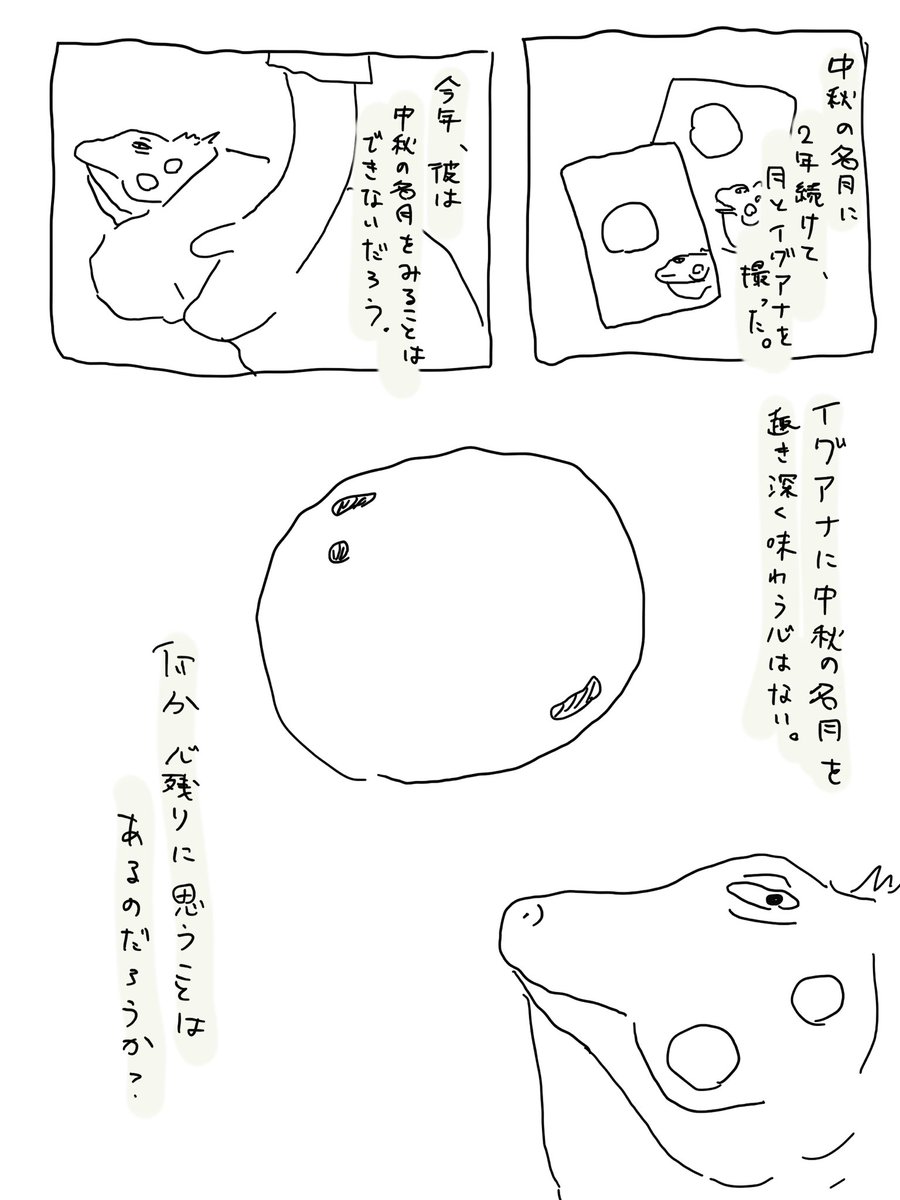 中秋の名月に
2年続けて、
月とイグアナを
撮った。
今年、彼は
中秋の名月をみることは
できないだろう.
イグアナに中秋の名月を
趣き深く味わう心はない。
何か心残りに思うことは
あるのだろうか?